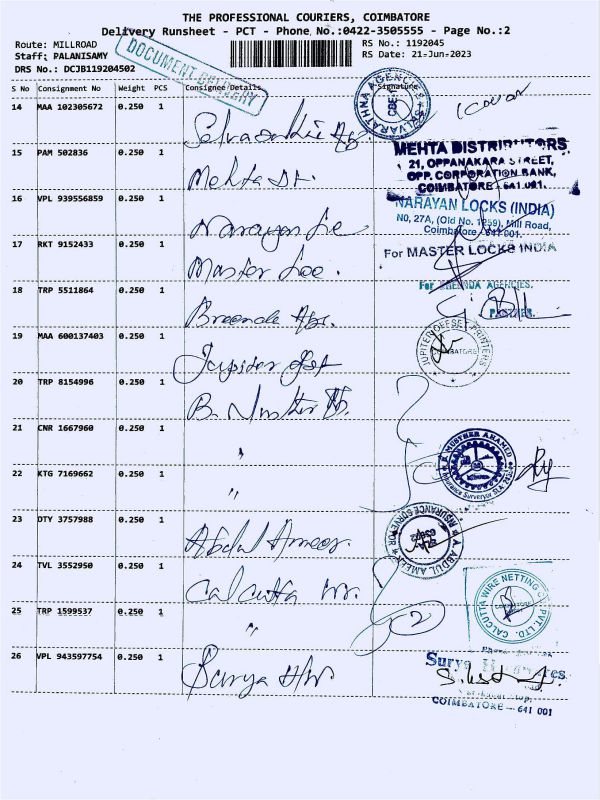 THE PROFESSIONAL COURIERS, COIMBATORE
Delivery Runsheet - PCT - Phone No.:0422-3505555 - Page No.:2
Route: MILLROAD
RS No.: 1192045
Staff: PALANISAMY
RS Date: 21-Jun-2023
DRS No.: DCJB119204502
DOCUMENT DELIVERY
S No Consignment No Weight PCS Consignee Details Signature
14 MAA 102305672 0.250 1
SELVARATHNA AGENCIES CBE
15 PAM 502836 0.250 1 Mehta Dt.
MEHTA DISTRIBUTORS
21, OPPANAKARA STREET,
OPP. CORPORATION BANK,
COIMBATORE - 641 001.
16 VPL 939556859 0.250 1 Narayan Loc
NARAYAN LOCKS (INDIA)
N0, 27A, (Old No. 1259), Mill Road,
Coimbatore - 641 001.
17 RKT 9152433 0.250 1 Master Loc.
For MASTER LOCKS INDIA
18 TRP 5511864 0.250 1
For BREENDA AGENCIES.
PARTNER.
19 MAA 600137403 0.250 1 Jupiter
JUPITER OFFSET PRINTERS
COIMBATORE
20 TRP 8154996 0.250 1
21 CNR 1667960 0.250 1 "
22 KTG 7169662 0.250 1 "
23 DTY 3757988 0.250 1 Abdul Ameer.
A. ABDUL AMEER
INSURANCE SURVEYOR
24 TVL 3552950 0.250 1 Calcutta
CALCUTTA WIRE NETTING C PVT. LTD.
25 TRP 1599537 0.250 1 " 2
26 VPL 943597754 0.250 1 Surya
Surya
COIMBATORE - 641 001